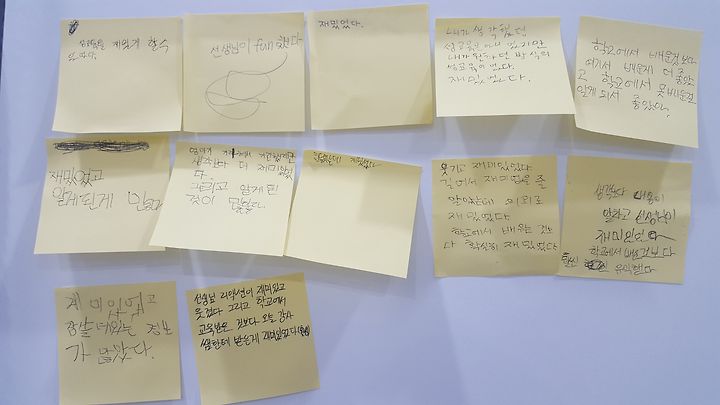 재밌게 할수
있다.
선생님이 fun했다
재밌었다.
내가 생각했던
성교육은 아니 였지만
내가 원하던 방식의
성교육이었다.
재미 있었다.
학교에서 배운것 보다
여기서 배운게 더 좋았
고 학교에서 못배운걸
알게 되서 좋았다.
재밌었고
알게된게 많다
생각한거 보다 더 재미있었
다.
그리고 알게된
것이 많았다.
재밌었다.
웃기고 재미있었다
겉에서 재미없을 줄
알았는데 의외로
재미있었다
학교에서 배우는 것보
다 확실히 재밌었다
생각보다 내용이
알차고 선생님이
재미있었다
학교에서 배운것보다
훨씬 유익했다
재미있었고
쓸데있는 정보
가 많았다.
선생님 리액션이 재미있고
웃겼다 그리고 학교에서
교육받은 것보다 오늘 강사
쌤한테 받는게 재미있었다